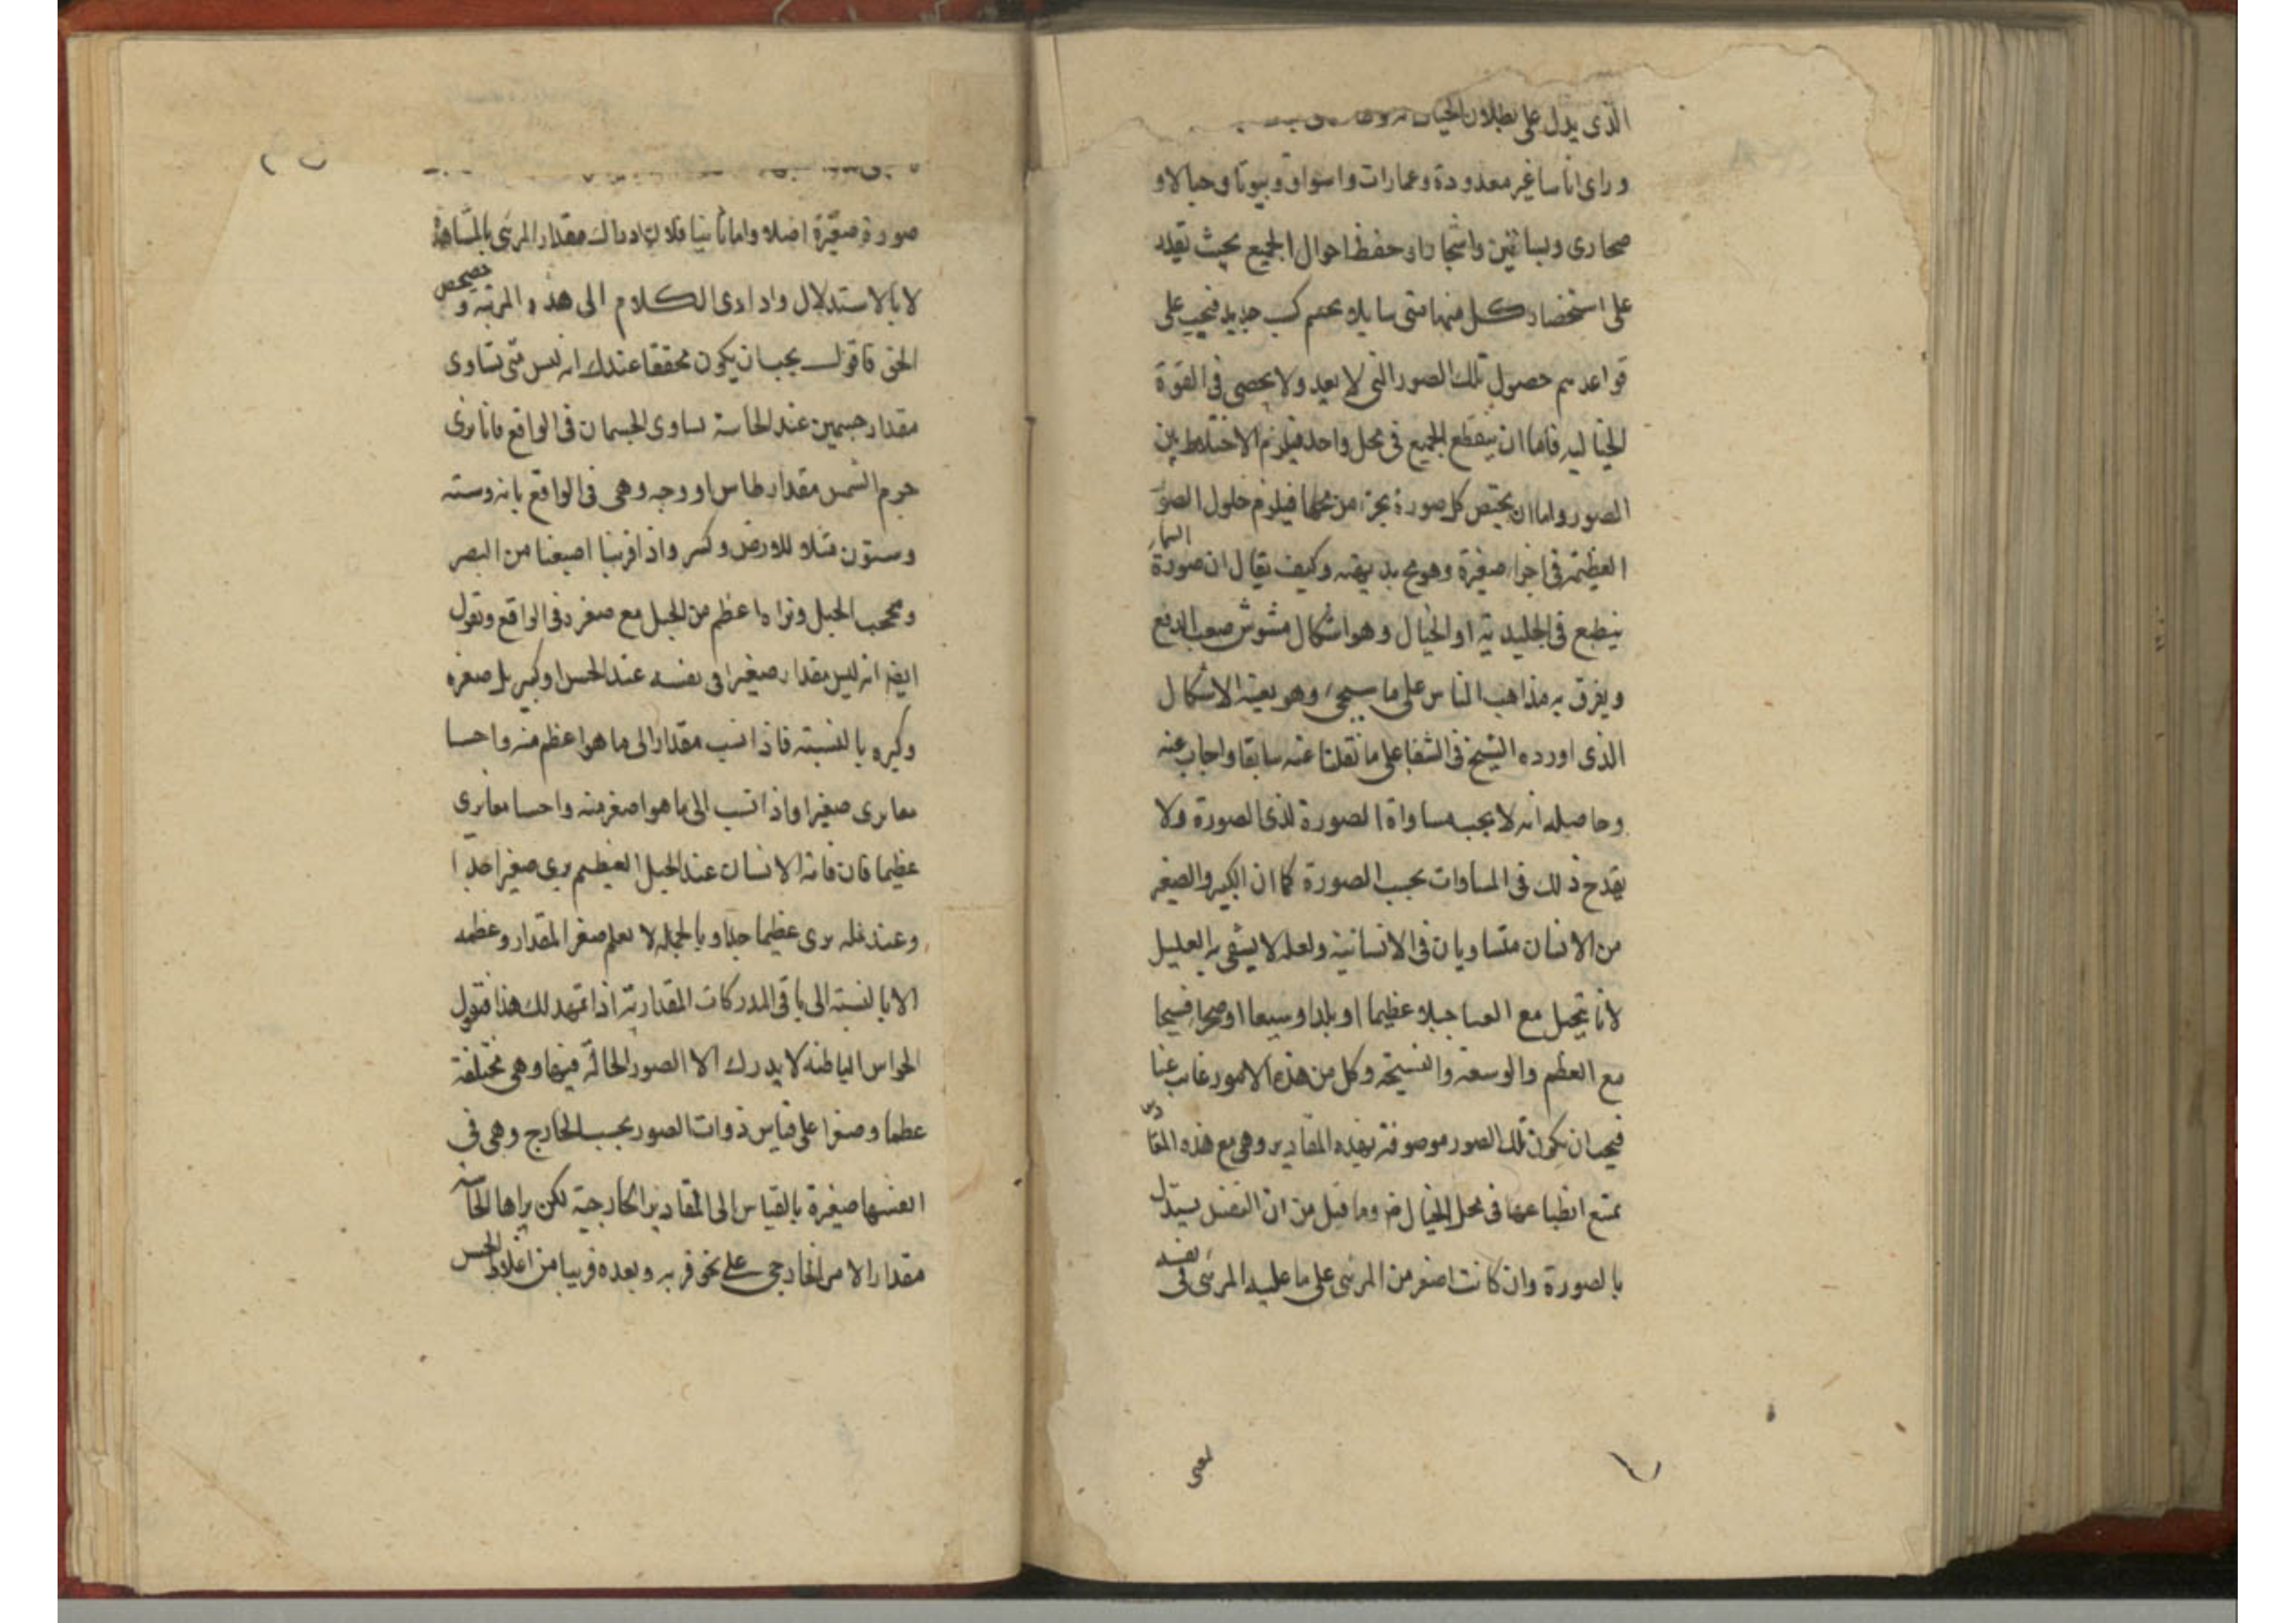 الذى يدل على بطلان الخيال
وراى اناسا غير معدودة وعمارات واسواق وبيوتا وجبالا و
صحارى وبساتين واشجارا وحفظ احوال الجميع بحيث يقدر
على استحضار كل منها متى شاء بلا تجشم كسب جديد فيجب على
قواعدهم حصول تلك الصور التى لا يعد ولا يحصى فى القوة
الخياليه فاما ان ينطبع الجميع فى محل واحد فيلزم الاختلاط بين
الصور واما ان يختص كل صورة بجزء من محلها فيلزم حلول الصور
العظيمة فى اجزاء صغيرة وهو مح بديهته وكيف يقال ان صورة السماء
ينطبع فى الجليدية او الخيال وهو اشكال مشوش صعب الدفع
ويفرق به مذاهب الناس على ما سيجىء وهو بعينه الاشكال
الذى اورده الشيخ فى الشفا على ما نقلنا عنه سابقا واجاب عنه
وحاصله انه لا يجب مساواة الصورة لذى الصورة ولا
يقدح ذلك فى المساوات بحسب الصورة كما ان الكبير والصغير
من الانسان متساويان فى الانسانية ولعله لا يشفى به العليل
لأنا نتخيل مع العمى جبلا عظيما او بلدا وسيعا او صحراء فسيحا
مع العظم والوسعة والفسيحة وكل من هذه الامور غاب عنا
فيجب ان يكون تلك الصور موصوفة بهذه المقادير وهى مع هذه المقادير
يمتنع انطباعها فى محل الخيال وما قيل من ان النفس يستدل
بالصورة وان كانت اصغر من المرئى على ما عليه المرئى فى نفسه
صورة صغيرة اصلا واما ثانيا فلان ادراك مقدار المرئى بالمشاهدة
لا بالاستدلال واذ ادى الكلام الى هذه المرتبة و
الحق فاقول يجب ان يكون محققا عندك انه ليس متى تساوى
مقدار جسمين عند الحاسة تساوى الجسمان فى الواقع فانا نرى
جرم الشمس مقدار طاس او وجه وهى فى الواقع مائة وستة
وستون مثلا للارض وكسر واذا قربنا اصبعنا من البصر
ويحجب الجبل ونراه اعظم من الجبل مع صغره فى الواقع ونقول
ايضا انه ليس مقدار صغيرا فى نفسه عند الحس او كبير بل صغره
وكبره بالنسبته فاذا نسب مقدار الى ما هو اعظم منه واحسا
معا يرى صغيرا واذا نسب الى ما هو اصغر منه واحسا معا يرى
عظيما فان قامة الانسان عند الجبل العظيم يرى صغيرا جدا
وعند نملة يرى عظيما جدا وبالجملة لا يعلم صغر المقدار وعظمه
الا بالنسبته الى باقى المدركات المقدارية اذا تمهد لك هذا فنقول
الحواس الباطنه لا يدرك الا الصور الحالة فيها وهى مختلفة
عظما وصغرا على قياس ذوات الصور بحسب الخارج وهى فى
انفسها صغيرة بالقياس الى المقادير الخارجية لكن يراها الحاسة
مقدار الامر الخارجى على نحو قربه وبعده قريبا من اغلاط الحس